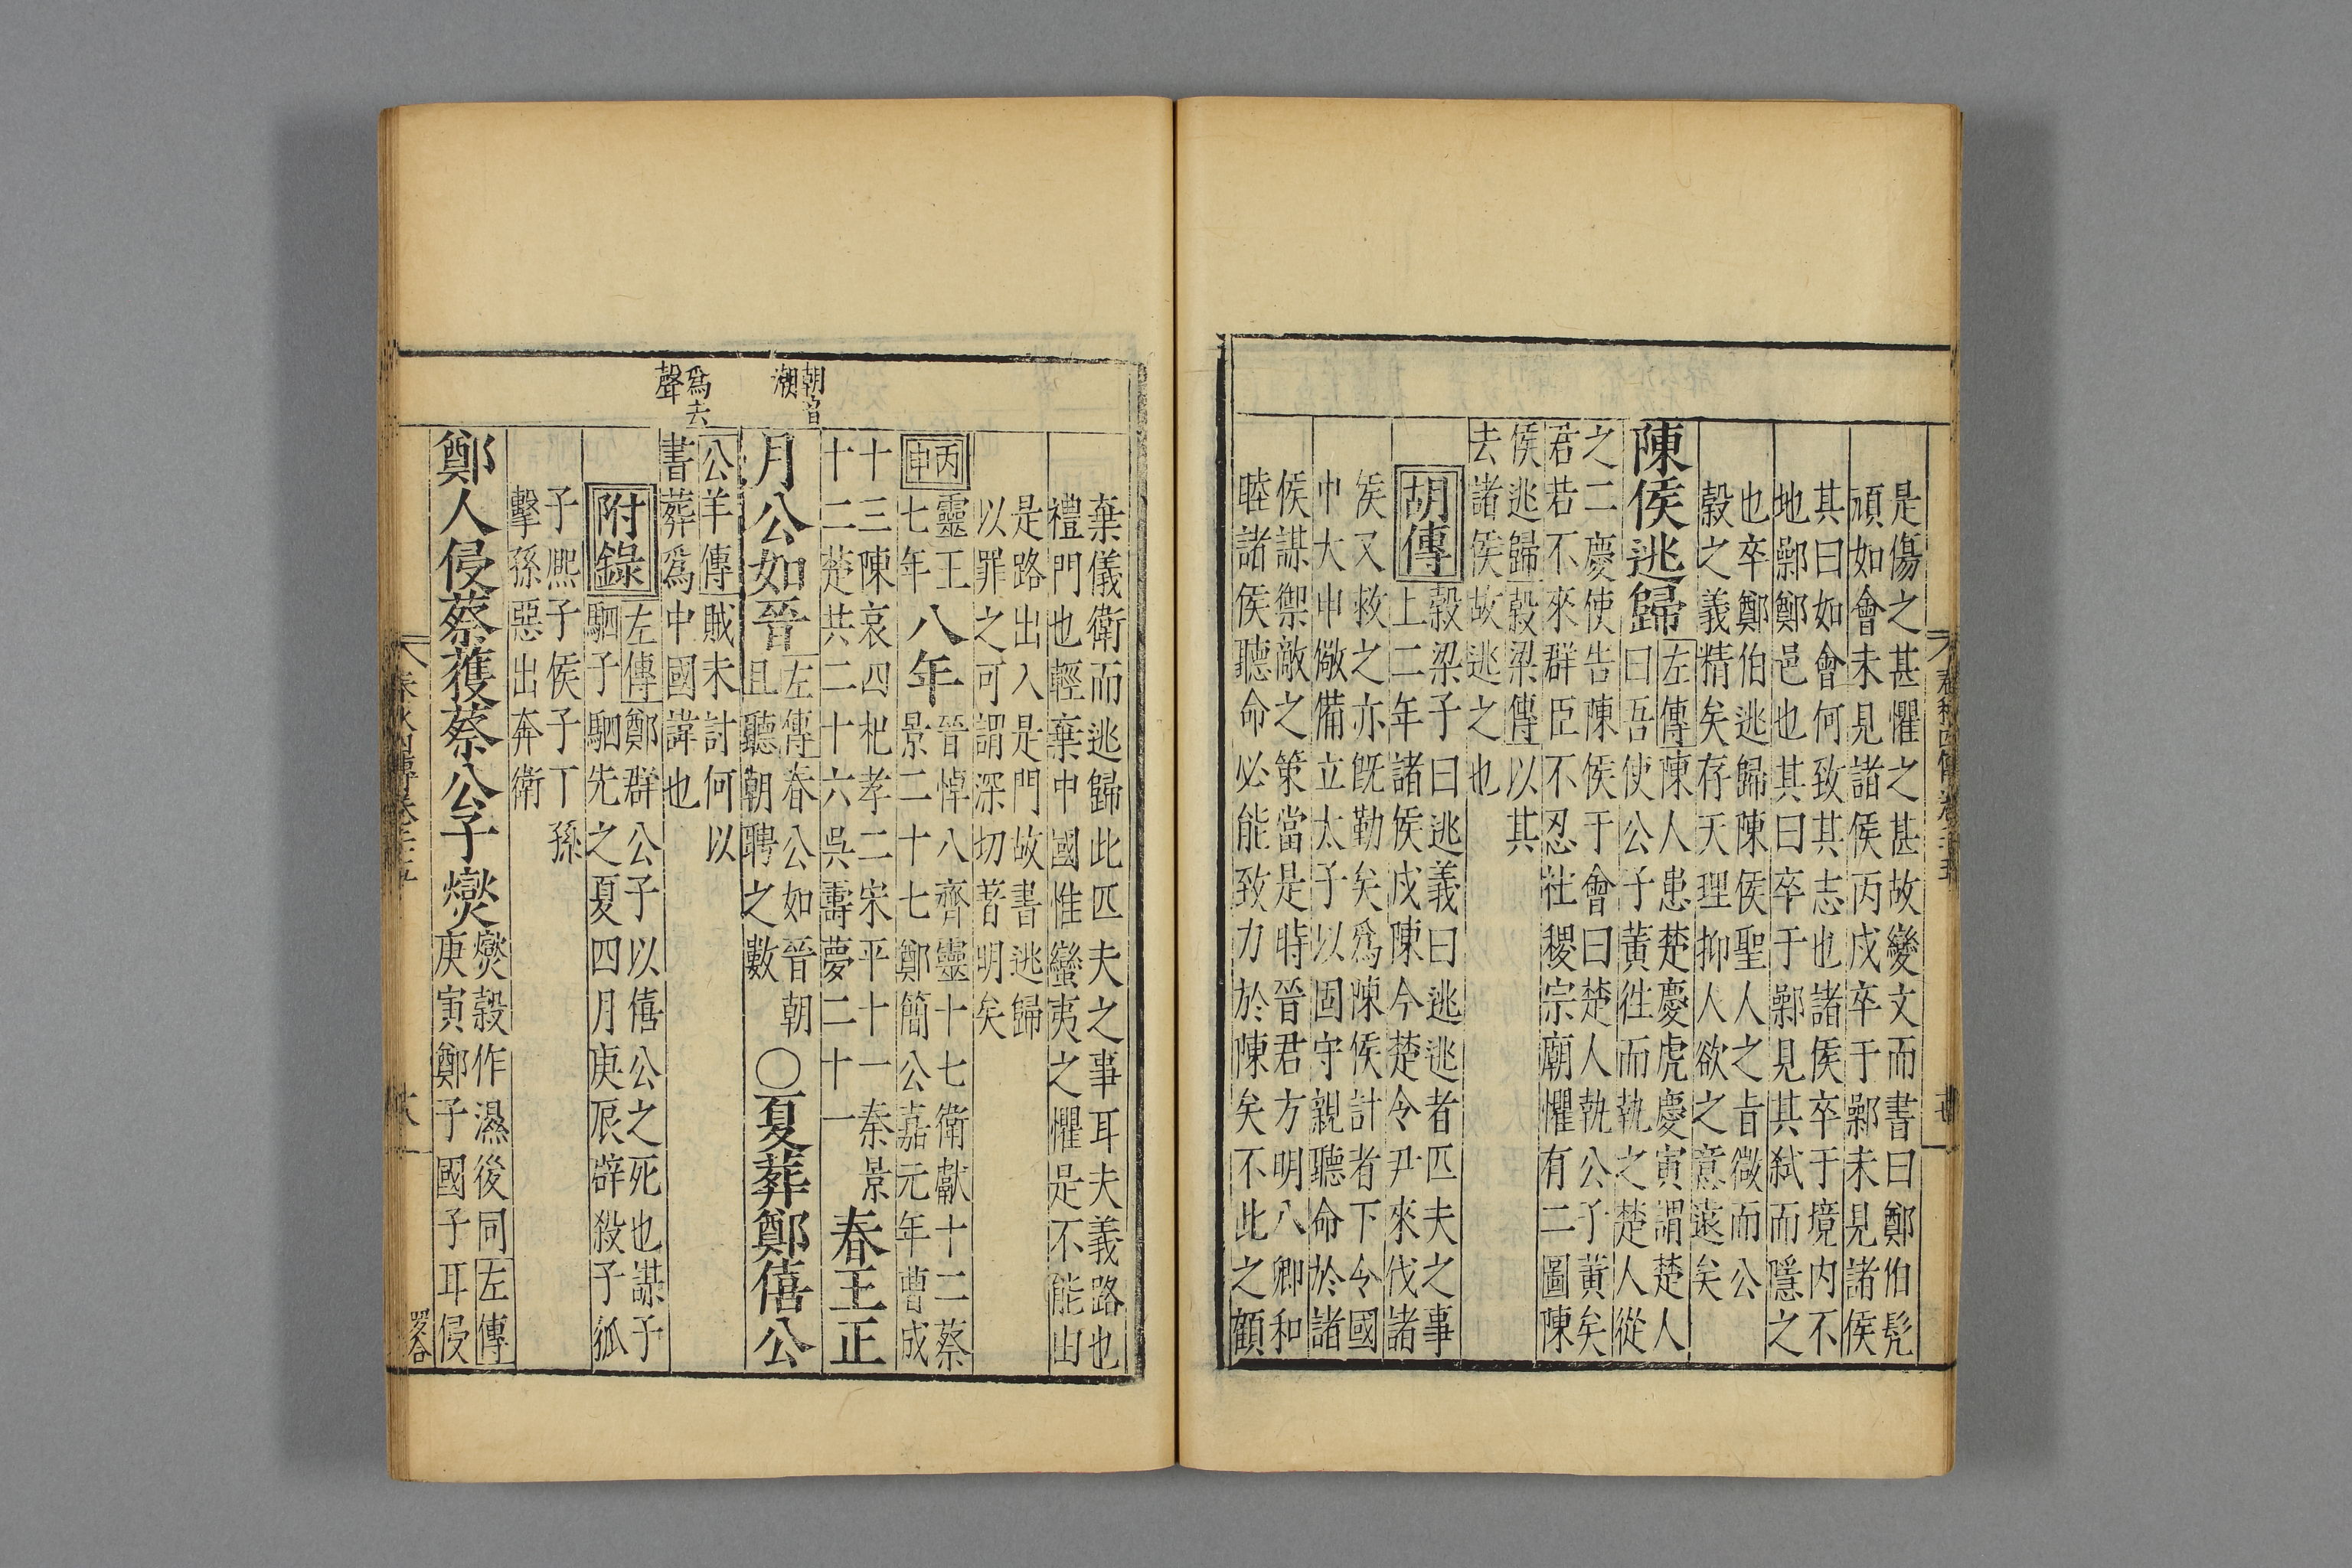 春秋四傳卷二十五
是傷之甚懼之甚故變文而書曰鄭伯髠
頑如會未見諸侯丙戌卒于鄵未見諸侯
其曰如會何致其志也諸侯卒于境内不
地鄵鄭邑也其曰卒于鄵見其弑而隱之
也卒鄭伯逃歸陳侯聖人之旨㣲而公
榖之義精矣存天理抑人欲之意遠矣
陳侯逃歸
左傳陳人患楚慶虎慶寅謂楚人
曰吾使公子黃徃而執之楚人從
之二慶使告陳侯于會曰楚人執公子黃矣
君若不來群臣不忍社稷宗廟懼有二圖陳
侯逃歸榖梁傳以其
去諸侯故逃之也
胡傳
榖梁子曰逃義曰逃逃者匹夫之事
上二年諸侯戍陳今楚令尹來伐諸
侯又救之亦旣勤矣爲陳侯計者下令國
中大申儆備立太子以固守親聽命於諸
侯謀禦敵之策當是時晉君方明八卿和
睦諸侯聽命必能致力於陳矣不此之顧
棄儀衛而逃歸此匹夫之事耳夫義路也
禮門也輕棄中國惟蠻夷之懼是不能由
是路出入是門故書逃歸
以罪之可謂深切著明矣
丙申
靈王
七年
八年
晉悼八齊靈十七衛獻十二蔡
景二十七鄭簡公嘉元年曹成
十三陳哀四杞孝二宋平十一秦景
十二楚共二十六吳壽夢二十一
春王正
朝音
潮
月公如晉
左傳春公如晉朝
且聽朝聘之數
○夏葬鄭僖公
爲去
聲
公羊傳賊未討何以
書葬爲中國諱也
附錄
左傳鄭群公子以僖公之死也謀子
駟子駟先之夏四月庚辰辟殺子狐
子熈子侯子丁孫
擊孫惡出奔衛
鄭人侵蔡獲蔡公子燮
燮榖作濕後同左傳
庚寅鄭子國子耳侵